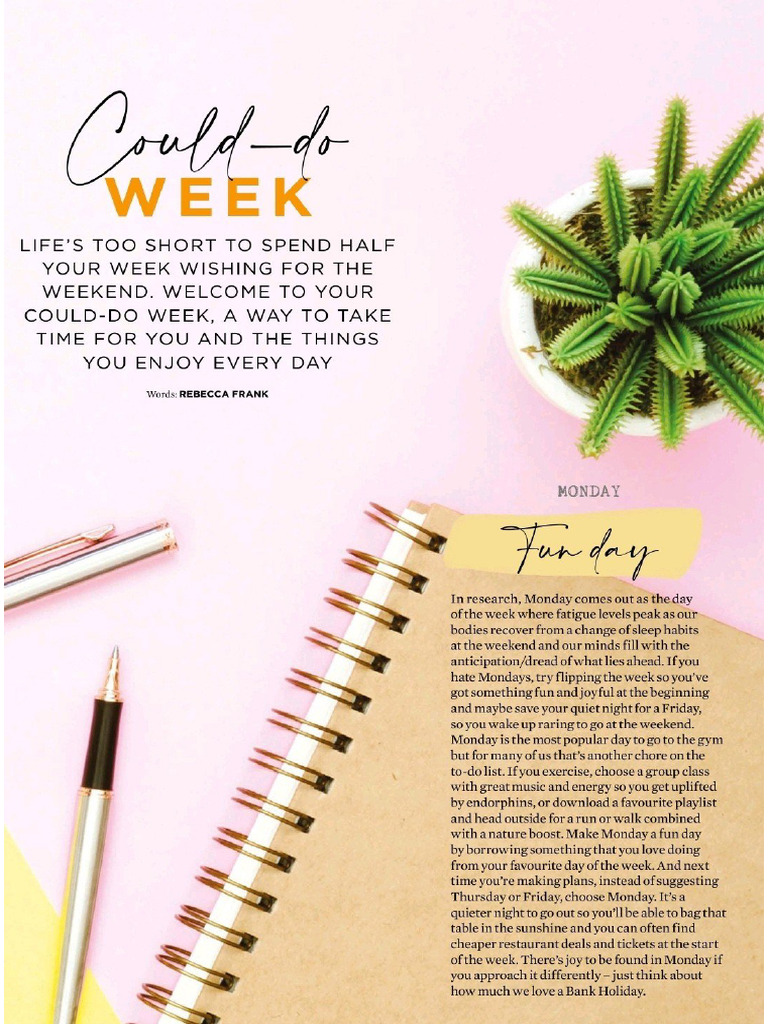 Could-do
WEEK
LIFE'S TOO SHORT TO SPEND HALF
YOUR WEEK WISHING FOR THE
WEEKEND. WELCOME TO YOUR
COULD-DO WEEK, A WAY TO TAKE
TIME FOR YOU AND THE THINGS
YOU ENJOY EVERY DAY
Words: REBECCA FRANK
MONDAY
Fun day
In research, Monday comes out as the day
of the week where fatigue levels peak as our
bodies recover from a change of sleep habits
at the weekend and our minds fill with the
anticipation/dread of what lies ahead. If you
hate Mondays, try flipping the week so you've
got something fun and joyful at the beginning
and maybe save your quiet night for a Friday,
so you wake up raring to go at the weekend.
Monday is the most popular day to go to the gym
but for many of us that's another chore on the
to-do list. If you exercise, choose a group class
with great music and energy so you get uplifted
by endorphins, or download a favourite playlist
and head outside for a run or walk combined
with a nature boost. Make Monday a fun day
by borrowing something that you love doing
from your favourite day of the week. And next
time you're making plans, instead of suggesting
Thursday or Friday, choose Monday. It's a
quieter night to go out so you'll be able to bag that
table in the sunshine and you can often find
cheaper restaurant deals and tickets at the start
of the week. There's joy to be found in Monday if
you approach it differently – just think about
how much we love a Bank Holiday.